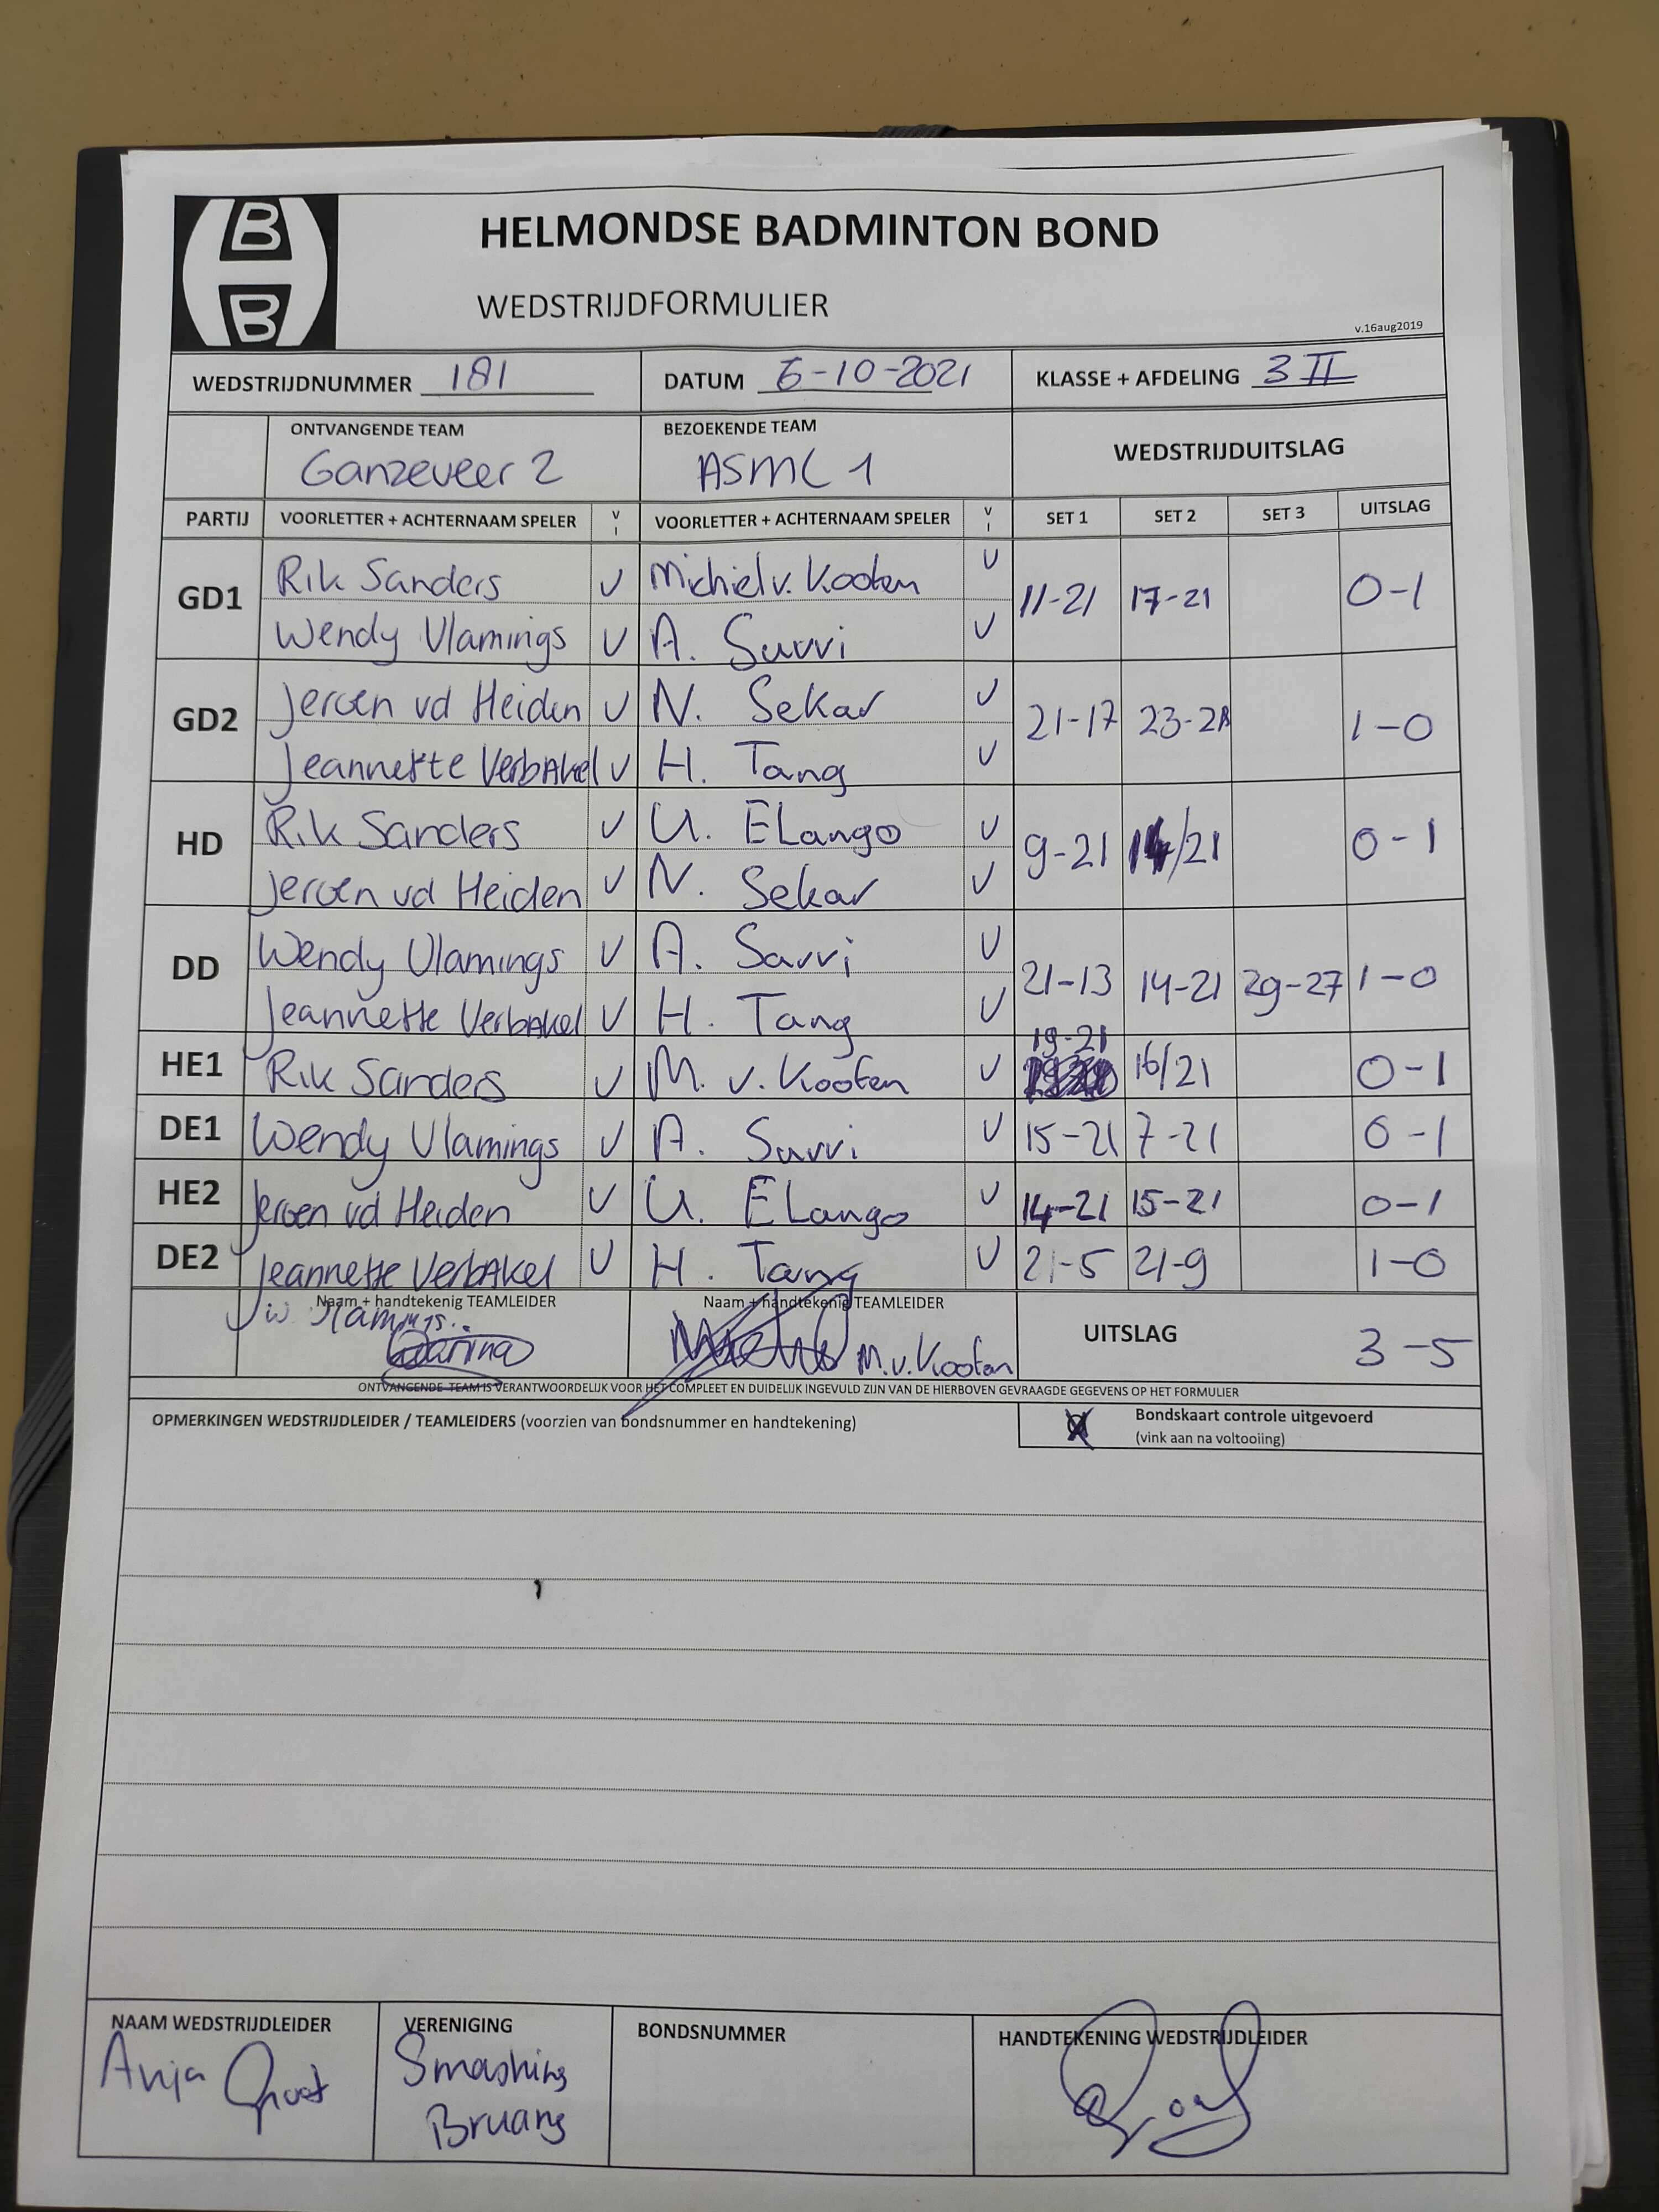 B
B
HELMONDSE BADMINTON BOND
WEDSTRIJDFORMULIER
v.16aug2019
WEDSTRIJDNUMMER 181 DATUM 6-10-2021 KLASSE + AFDELING 3 II
ONTVANGENDE TEAM BEZOEKENDE TEAM WEDSTRIJDUITSLAG
Ganzeveer 2 ASMC 1
PARTIJ VOORLETTER + ACHTERNAAM SPELER V I VOORLETTER + ACHTERNAAM SPELER V I SET 1 SET 2 SET 3 UITSLAG
GD1 Rik Sanders V Michiel v. Kooten V 11-21 17-21 0-1
Wendy Vlamings V A. Savvi V
GD2 Jeroen vd Heiden V N. Sekar V 21-17 23-21 1-0
Jeannette Verbakel V H. Tang V
HD Rik Sanders V U. ELango V 9-21 14/21 0-1
Jeroen vd Heiden V N. Sekar V
DD Wendy Vlamings V A. Savvi V 21-13 14-21 29-27 1-0
Jeannette Verbakel V H. Tang V
HE1 Rik Sanders V M. v. Kooten V 19-21 16/21 0-1
DE1 Wendy Vlamings V A. Savvi V 15-21 7-21 0-1
HE2 Jeroen vd Heiden V U. ELango V 14-21 15-21 0-1
DE2 Jeannette Verbakel V H. Tang V 21-5 21-9 1-0
Naam + handtekenig TEAMLEIDER Naam + handtekenig TEAMLEIDER UITSLAG 3-5
W. Vlamings M.v.Kooten
ONTVANGENDE TEAM IS VERANTWOORDELIJK VOOR HET COMPLEET EN DUIDELIJK INGEVULD ZIJN VAN DE HIERBOVEN GEVRAAGDE GEGEVENS OP HET FORMULIER
OPMERKINGEN WEDSTRIJDLEIDER / TEAMLEIDERS (voorzien van bondsnummer en handtekening) Bondskaart controle uitgevoerd
(vink aan na voltooiing)
NAAM WEDSTRIJDLEIDER VERENIGING BONDSNUMMER HANDTEKENING WEDSTRIJDLEIDER
Anja Smashing
Bruang